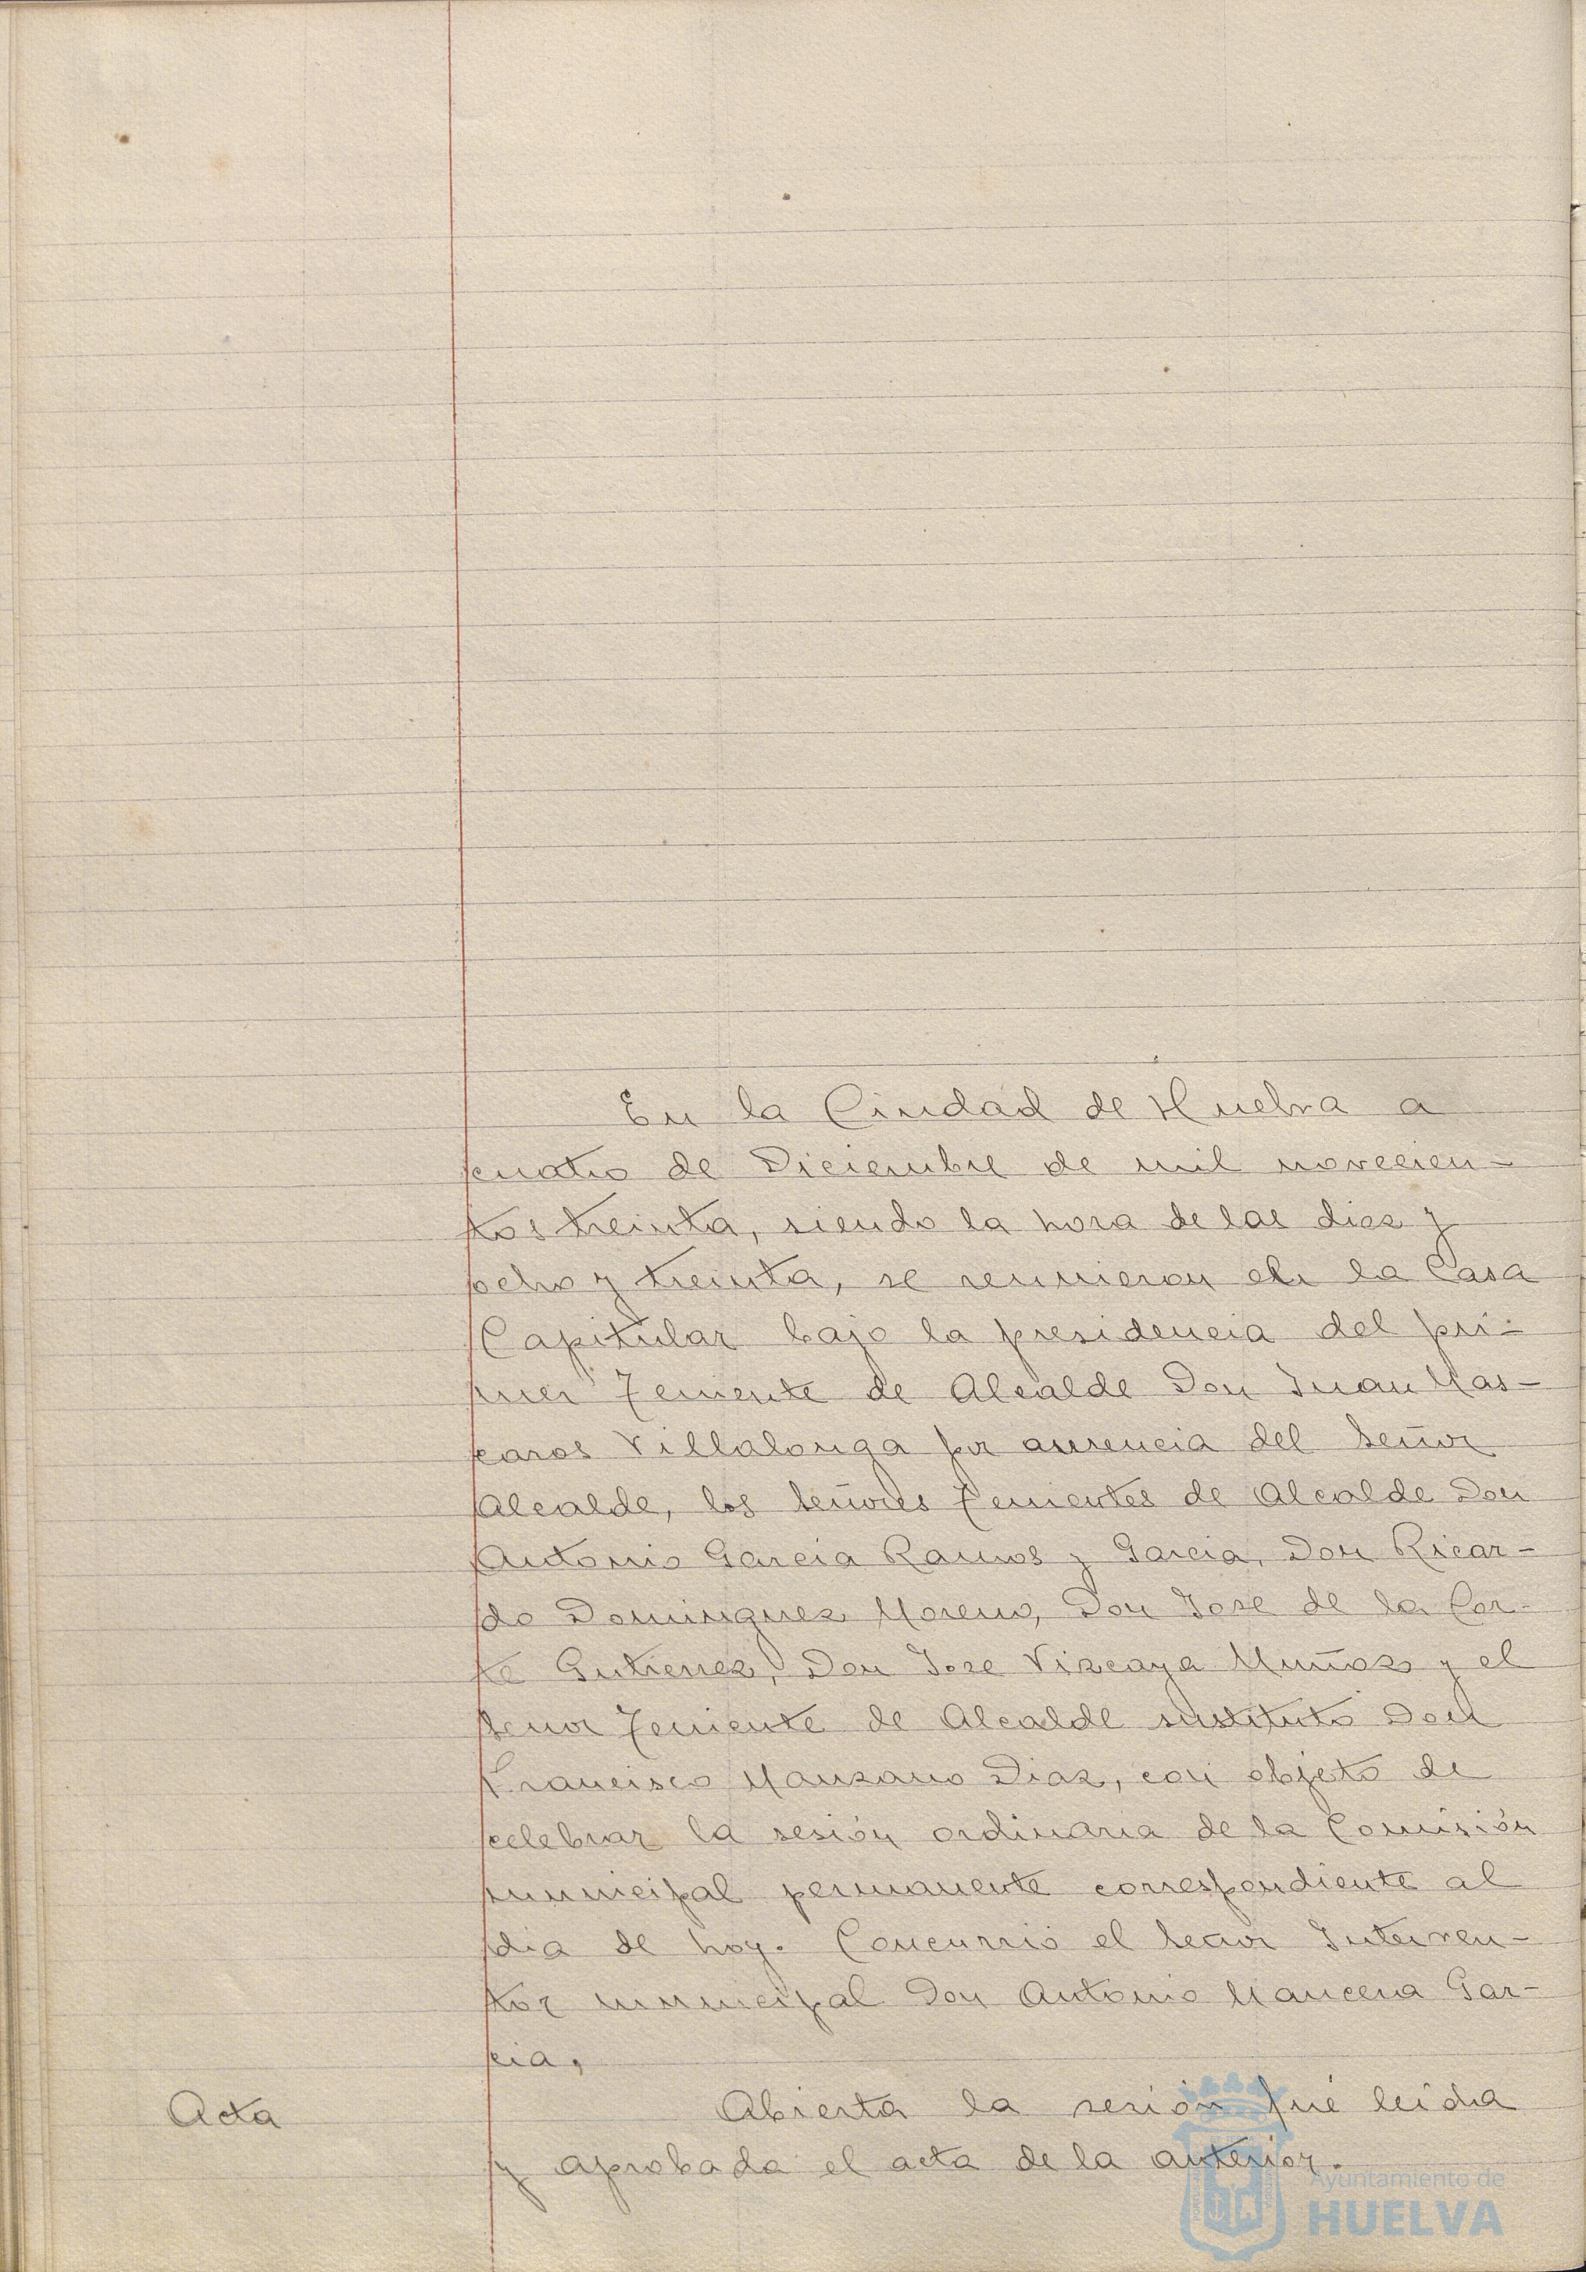 En la Ciudad de Huelva a
cuatro de Diciembre de mil novecien-
tos treinta, siendo la hora de las diez y
ocho y treinta, se reunieron en la Casa
Capitular bajo la presidencia del pri-
mer Teniente de Alcalde Don Juan Mas-
caros Villalonga por ausencia del Señor
Alcalde, los Señores Tenientes de Alcalde Don
Antonio Garcia Ramos y Garcia, Don Ricar-
do Dominguez Moreno, Don Jose de la Cor-
te Gutierrez, Don Jose Vizcaya Muñoz y el
Senor Teniente de Alcalde sustituto Don
Francisco Manzano Diaz, con objeto de
celebrar la sesión ordinaria de la Comisión
municipal permanente correspondiente al
dia de hoy. Concurrió el Señor Interven-
tor municipal Don Antonio Mancera Gar-
cia.
Acta Abierta la sesión fué leída
y aprobada el acta de la anterior.
Ayuntamiento de
HUELVA